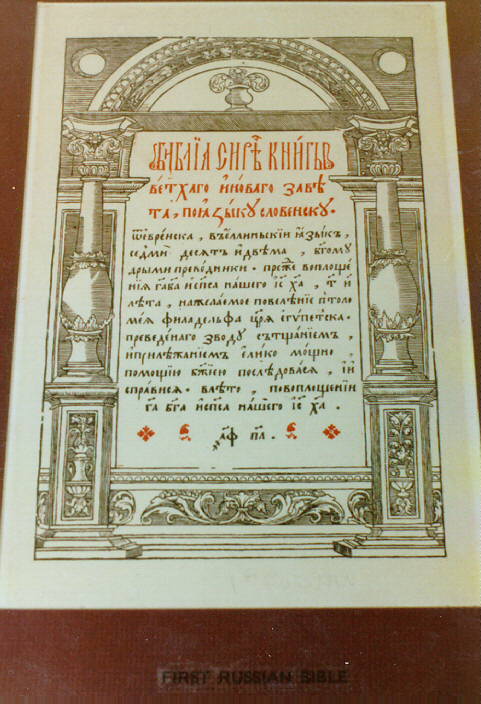 БИБЛІА СИРѢ҃Ч КНИ́ГЫ
ве́тхаго и҆ но́ваго завѣ́
та, поꙗ҆зы́ку словенску.
Ѿ е҆вре́йска, въ е҆ллиньскїи ꙗ҆зы́къ,
седмїдесѧ́тъ и҆ двѣма, бг҃ому
дрыми преводники. пре́же воплоще
нїѧ гд҃а бг҃а и҆ сп҃са на́шего іс҃ ха҃, т҃ и҆
лѣта, нажелаемое повелѣ́нїе птоло
меѧ филаделфа цр҃ѧ е҆гѵпетска.
преведе́наго зводу сътщанїемъ,
и҆ прилѣжанїемъ е҆лико мощно,
помощїю бж҃їею послѣдовасѧ, і҆ и҆
спра́висѧ. в лѣто, повоплощенїи
гд҃а бг҃а и҆ сп҃са на́шего іс҃ ха҃.
҂аф па.
FIRST RUSSIAN BIBLE